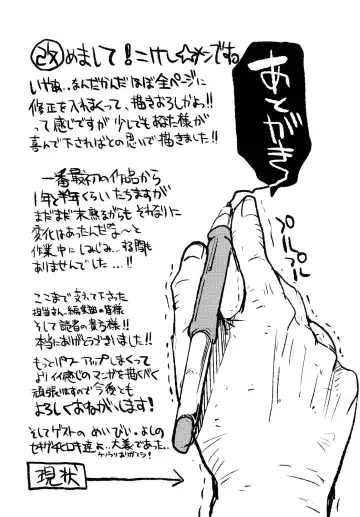 あとがき
改めまして!こけし☆メンですね
いやぁ..なんだかんだほぼ全ページに
修正を入れまくって、描きおろしかよ!!
って感じですが少しでもあなた様が
喜んで下さればとの思いで描きました!!
一番最初の作品から
1年と半年くらいたちますが
まだまだ未熟ながらも それなりに
変化はあったんだな〜と
作業中にしみじみ...する間も
ありませんでした...!!
ここまで支えて下さった
担当さん、編集部の皆様
そして読者の貴方様!!
本当にありがとうございました!!
もっとパワーアップしまくって
よりイイ感じのマンガを描くべく
頑張りますので今後とも
よろしくおねがいします!
そしてゲストの めいびい・よしの
セキザキヒロキ達よ...大義であった..
現状
プルプル